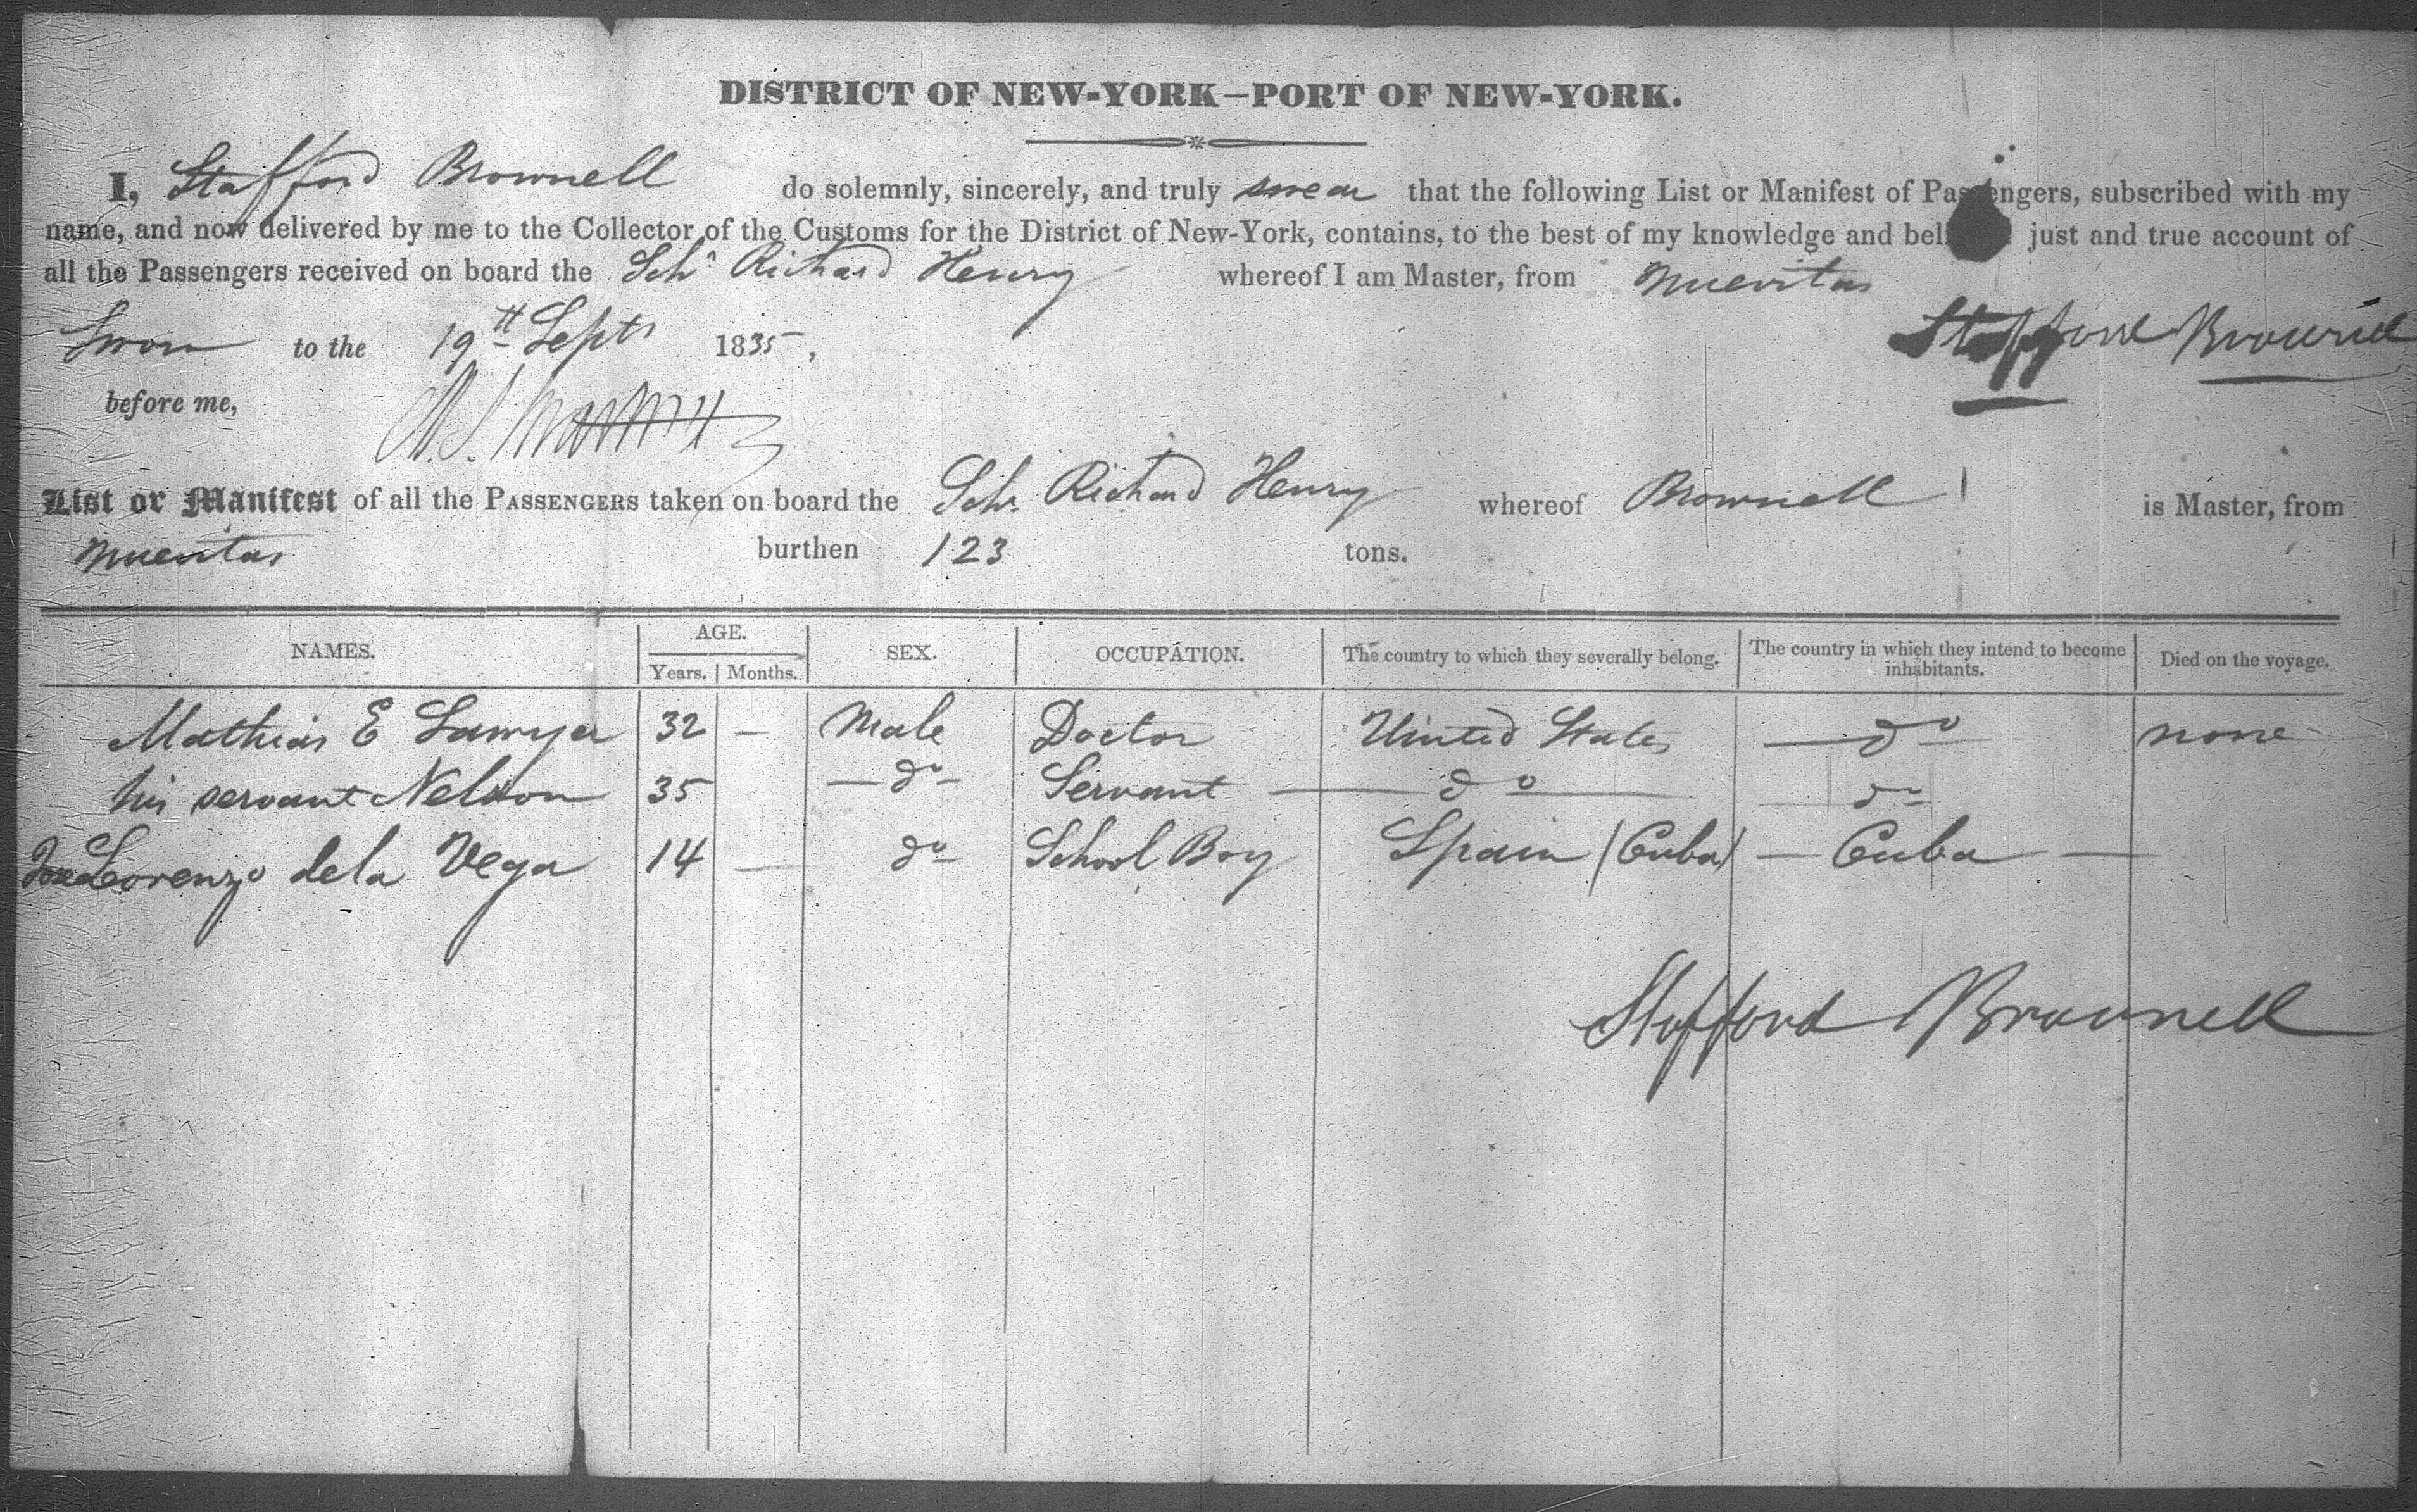 DISTRICT OF NEW-YORK—PORT OF NEW-YORK.
I, Stafford Brownell do solemnly, sincerely, and truly swear that the following List or Manifest of Passengers, subscribed with my
name, and now delivered by me to the Collector of the Customs for the District of New-York, contains, to the best of my knowledge and bel just and true account of
all the Passengers received on board the Schr Richard Henry whereof I am Master, from Nuevitas
Sworn to the 19th Septr 1835,
Stafford Brownell
before me,
List or Manifest of all the PASSENGERS taken on board the Schr Richard Henry whereof Brownell is Master, from
Nuevitas burthen 123 tons.
NAMES. AGE. Years. Months. SEX. OCCUPATION. The country to which they severally belong. The country in which they intend to become inhabitants. Died on the voyage.
Mathias E Sawyer 32 — Male Doctor United States — do — none
his servant Nelson 35 — do — Servant — do — do
Lorenzo dela Vega 14 — do School Boy Spain (Cuba) — Cuba —
Stafford Brownell